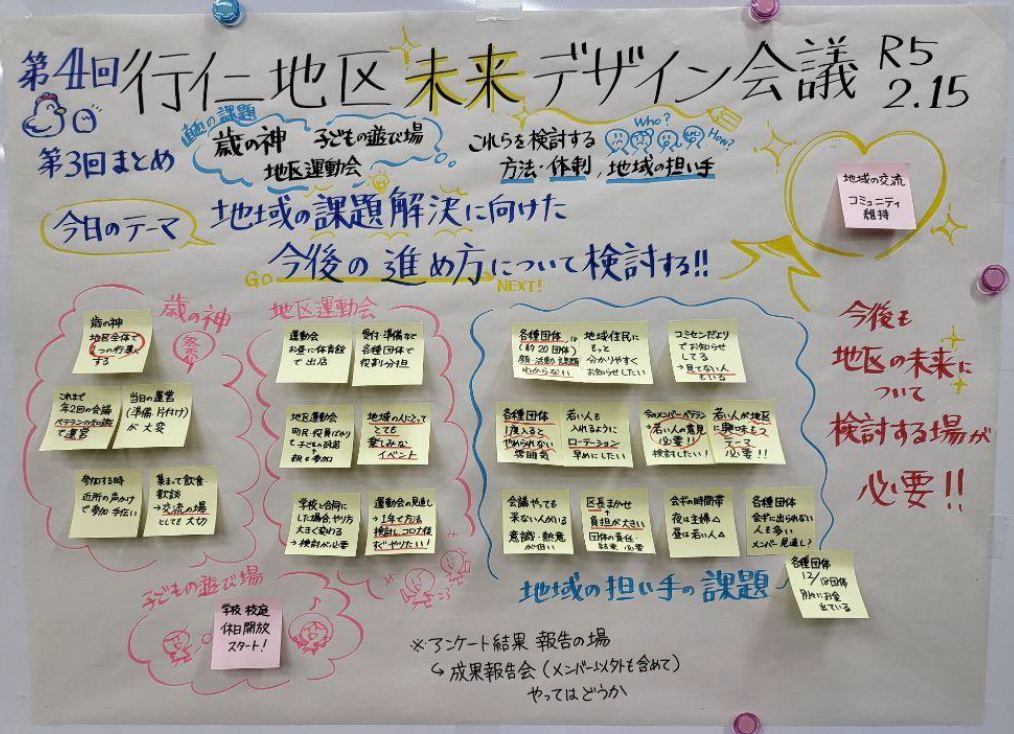 第4回 行仁地区 未来デザイン会議 R5 2.15
第3回まとめ
直面の課題
歳の神 子どもの遊び場
地区運動会
これらを検討する
方法・体制,地域の担い手
Who?
How?
地域の交流
コミュニティ
維持
今日のテーマ
地域の課題解決に向けた
Go 今後の進め方について検討する!!
NEXT!
歳の神
歳の神
地区全体で
1つの行事に
する
これまで
年2回の会議
ベテランの知識
で運営
当日の運営
(準備 片付け)
が大変
参加する時
近所の声かけ
で参加 手伝い
集まって飲食
歓談
→交流の場
としても大切
地区運動会
運動会
お昼に体育館
で出店
受付・準備など
各種団体で
役割分担
地区運動会
町民・役員ばかり
子どもの種目
親も参加
地域の人にとって
とても
楽しみな
イベント
学校と合同に
した場合、やり方
大きく変わる
→検討が必要
運動会の見直し
→1年で方法
検討し、コロナ後
すぐやりたい!
各種団体、は
(約20団体)
顔・活動・課題
わからない
地域住民に
もっと
分かりやすく
お知らせしたい
コミセンだより
でお知らせ
してる
→見てない人
もいる
各種団体
1度入ると
やめられない
雰囲気
若い人も
入れるように
ローテーション
早めにしたい
今のメンバーベテラン
→若い人の意見
必要!!
検討したい!
若い人が地区
に興味もつ
テーマ
必要!!
会議やっても
来ない人がいる
意識・熱意
が低い
区長まかせ
負担が大きい
団体の責任・
結束 必要
会ギの時間帯
夜は主婦△
昼は若い人△
各種団体
会ギに出られない
人も多い
メンバー見直し?
各種団体
12/18団体
別々にお金
出ている
地域の担い手の課題
今後も
地区の未来に
ついて
検討する場が
必要!!
子どもの遊び場
学校 校庭
休日開放
スタート!
※アンケート結果 報告の場
↳成果報告会(メンバー以外も含めて)
やってはどうか